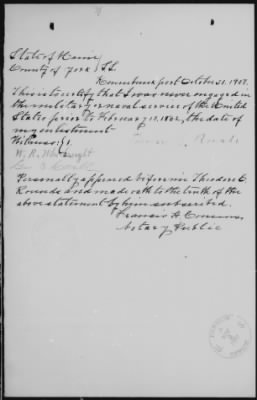 State of Maine }
County of York } SS.
Kennebunkport October 21. 1907.
This is to certify that I was never engaged in
the military or naval service of the United
States prior to February 10. 1862, the date of
my enlistment
Witness: }
W. R.
Personally appeared before me Theodore C.
Rounds and made oath to the truth of the
above statement by him subscribed.
Francis H.
Notary Public